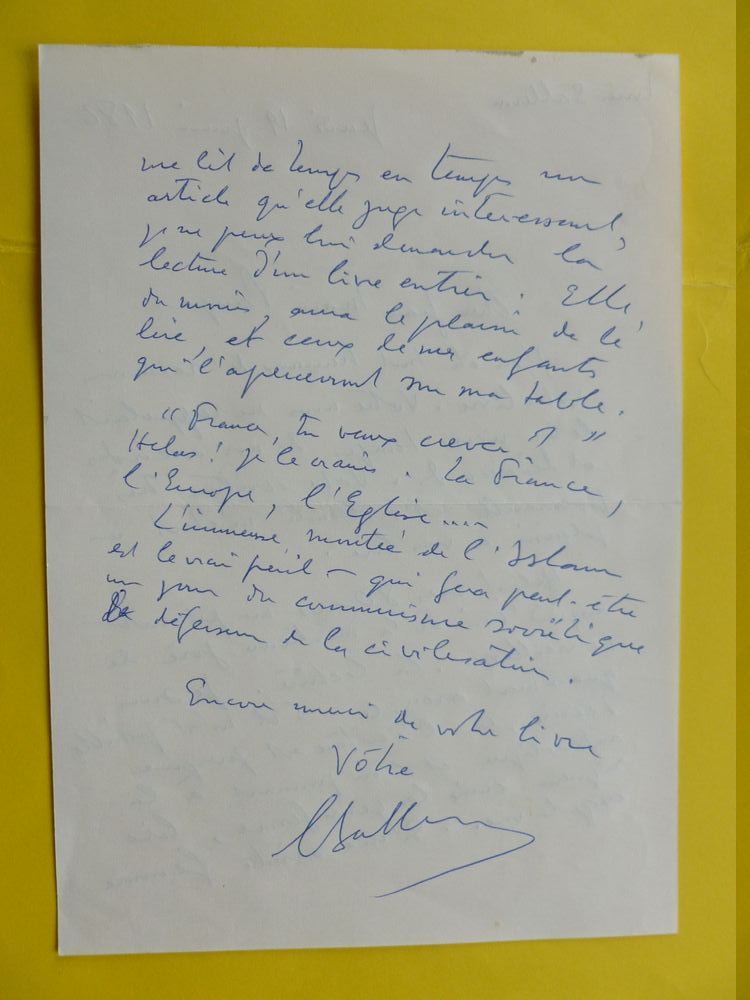 me lit de temps en temps un
article qu'elle juge intéressant,
je ne peux lui demander la
lecture d'un livre entier. Elle,
du moins, aura le plaisir de le
lire, et ceux de mes enfants
qui l'apercevront sur ma table.
"France, tu veux crever ?"
Hélas ! je le crains. La France,
l'Europe, l'Eglise....
L'immense montée de l'Islam
est le vrai péril - qui fera peut-être
un jour du communisme soviétique
le défenseur de la civilisation.
Encore merci de votre livre
Vôtre